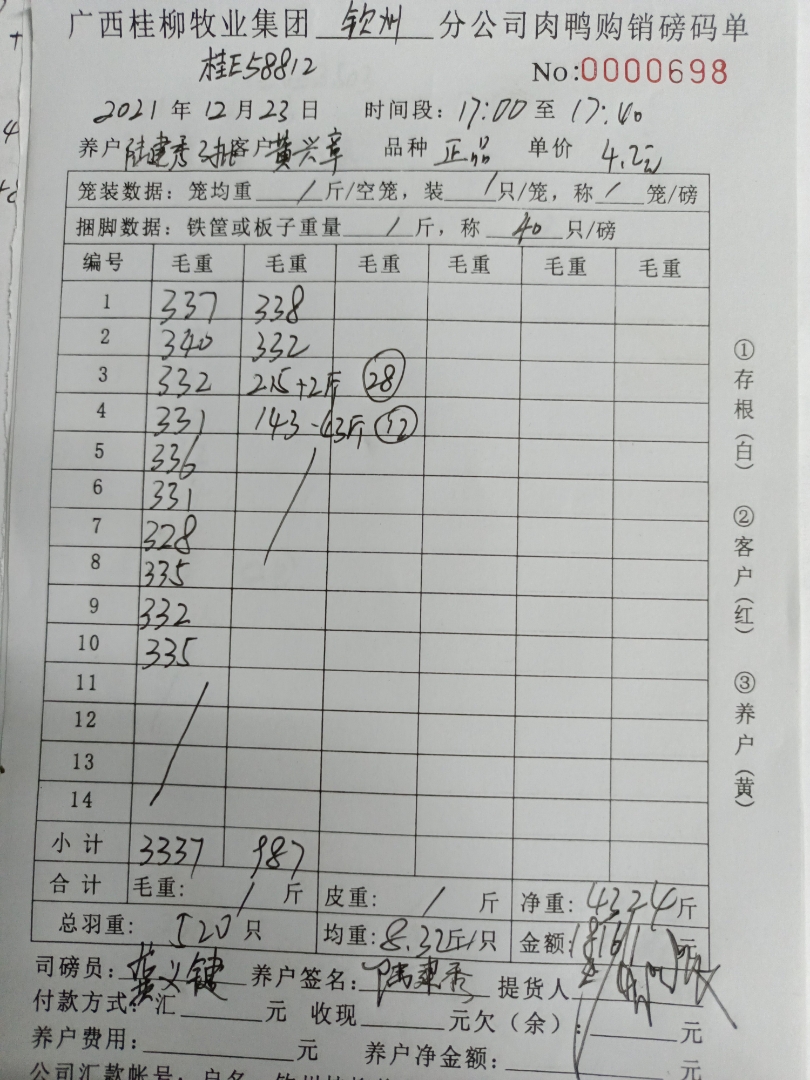 广西桂柳牧业集团 钦州 分公司肉鸭购销磅码单
桂E58812
No:0000698
2021 年 12 月 23 日 时间段: 17:00 至 17:40
养户 陆建秀 客户 黄兴章 品种 正品 单价 4.2元
笼装数据: 笼均重 / 斤/空笼, 装 / 只/笼, 称 / 笼/磅
捆脚数据: 铁筐或板子重量 / 斤, 称 40 只/磅
编号 毛重 毛重 毛重 毛重 毛重 毛重
1 337 338
2 340 332
3 332 215+2斤 28
4 331 143-43斤 12
5 336
6 331
7 328
8 335
9 332
10 335
11
12
13
14
小计 3337 987
合计 毛重: / 斤 皮重: / 斤 净重: 4324斤
总羽重: 520 只 均重: 8.32斤/只 金额: 元
司磅员: 养户签名: 陆建秀 提货人
付款方式: 汇 元 收现 元 欠(余): 元
养户费用: 元 养户净金额: 元
公司汇款帐号: 户名
①存根(白) ②客户(红) ③养户(黄)